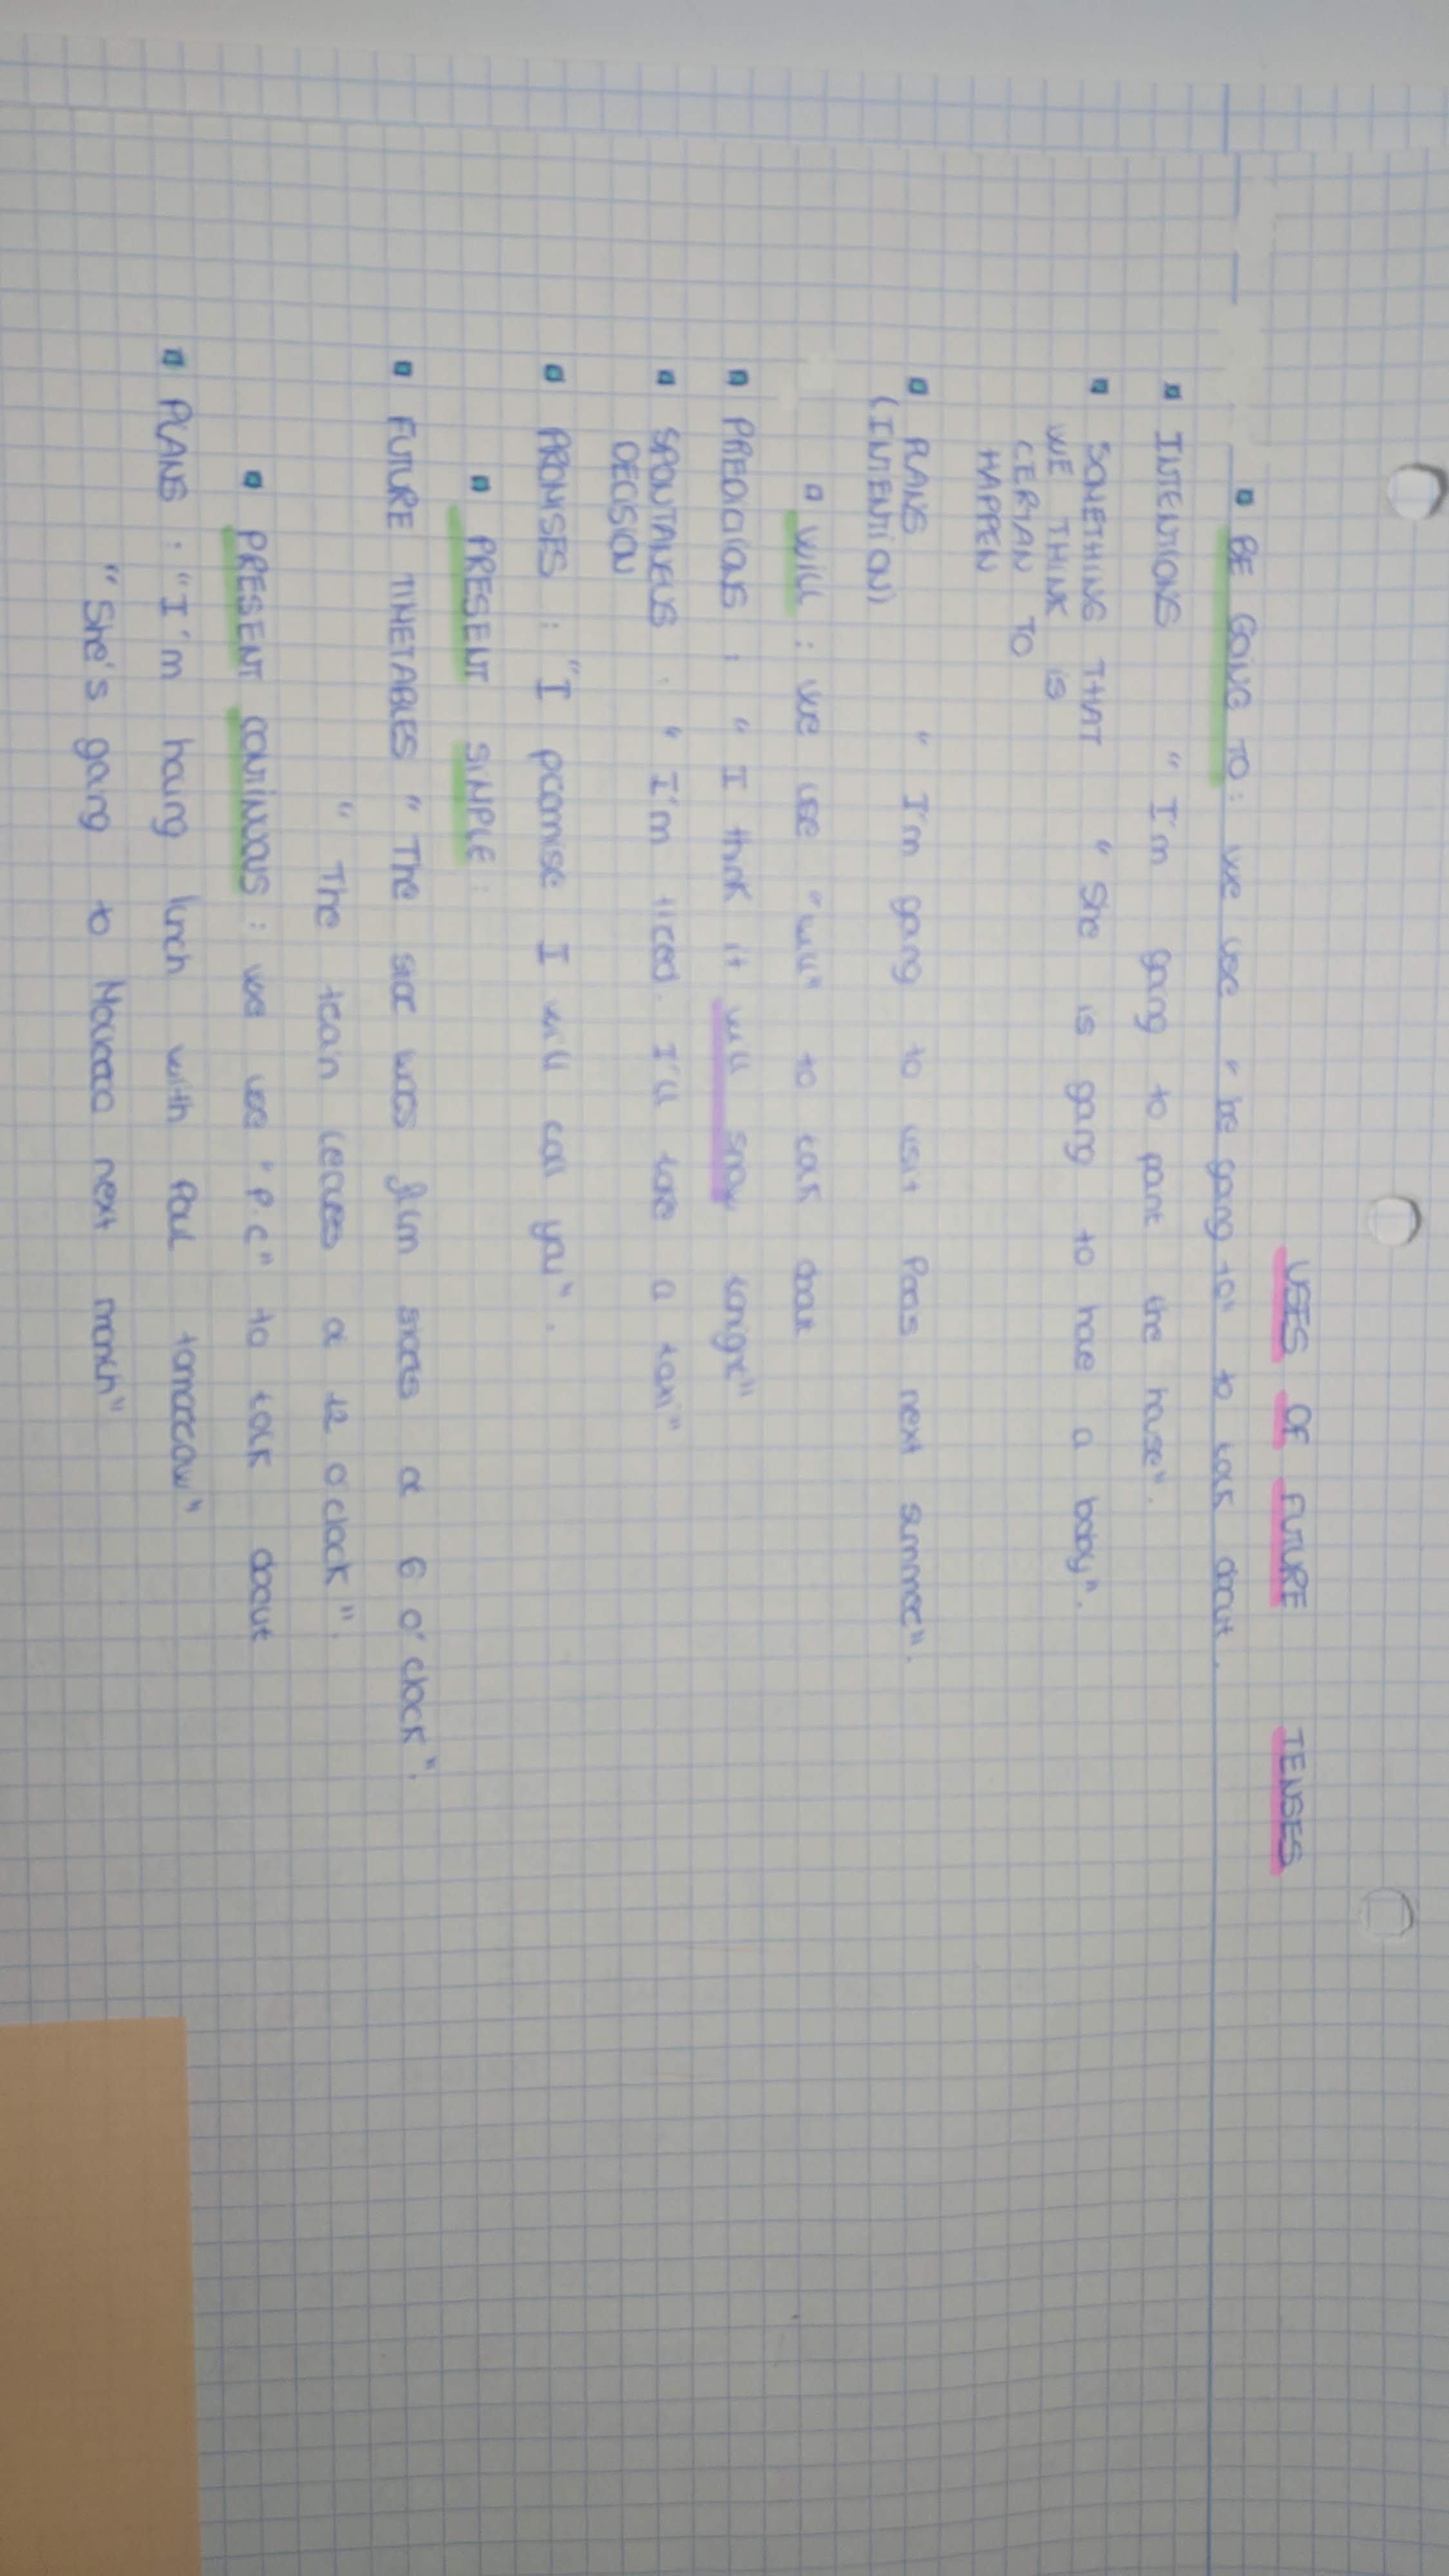 USES OF FUTURE TENSES
BE GOING TO: we use "be going to" to talk about.
INTENTIONS "I'm going to paint the house".
SOMETHING THAT "She is going to have a baby".
WE THINK IS
CERTAN TO
HAPPEN
PLANS "I'm going to visit Paris next summer".
(INTENTION)
WILL: we use "will" to talk about
PREDICIONS: "I think it will snow tonight"
SPONTANEUS: "I'm tired. I'll take a taxi"
DECISION
PROMISES: "I promise I will call you".
PRESENT SIMPLE:
FUTURE TIMETABLES "The star wars film starts at 6 o'clock".
"The train leaves at 12 o'clock".
PRESENT CONTINUOUS: we use "P.C" to talk about
PLANS: "I'm having lunch with Paul tomorrow"
"She's going to next month"